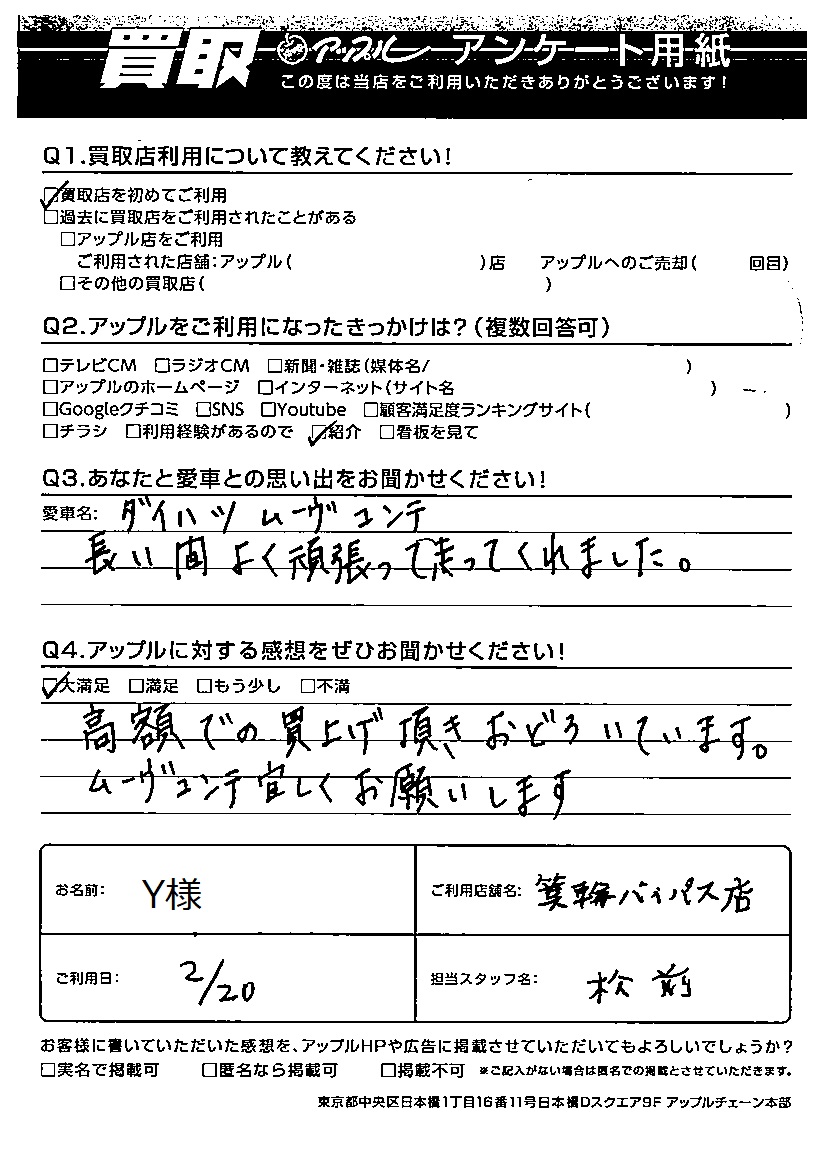 買取 アップル アンケート用紙
この度は当店をご利用いただきありがとうございます!
Q1.買取店利用について教えてください!
☑買取店を初めてご利用
□過去に買取店をご利用されたことがある
□アップル店をご利用
ご利用された店舗:アップル( )店 アップルへのご売却( 回目)
□その他の買取店( )
Q2.アップルをご利用になったきっかけは?(複数回答可)
□テレビCM □ラジオCM □新聞・雑誌(媒体名/ )
□アップルのホームページ □インターネット(サイト名 )
□Googleクチコミ □SNS □Youtube □顧客満足度ランキングサイト( )
□チラシ □利用経験があるので ☑紹介 □看板を見て
Q3.あなたと愛車との思い出をお聞かせください!
愛車名: ダイハツ ムーヴ コンテ
長い間よく頑張って走ってくれました。
Q4.アップルに対する感想をぜひお聞かせください!
☑大満足 □満足 □もう少し □不満
高額での買上げ頂きおどろいています。
ムーヴコンテ宜しくお願いします
お名前: Y様 ご利用店舗名: 箕輪バイパス店
ご利用日: 2/20 担当スタッフ名: 松前
お客様に書いていただいた感想を、アップルHPや広告に掲載させていただいてもよろしいでしょうか?
□実名で掲載可 □匿名なら掲載可 □掲載不可 ※ご記入がない場合は匿名での掲載とさせていただきます。
東京都中央区日本橋1丁目16番11号日本橋Dスクエア9F アップルチェーン本部